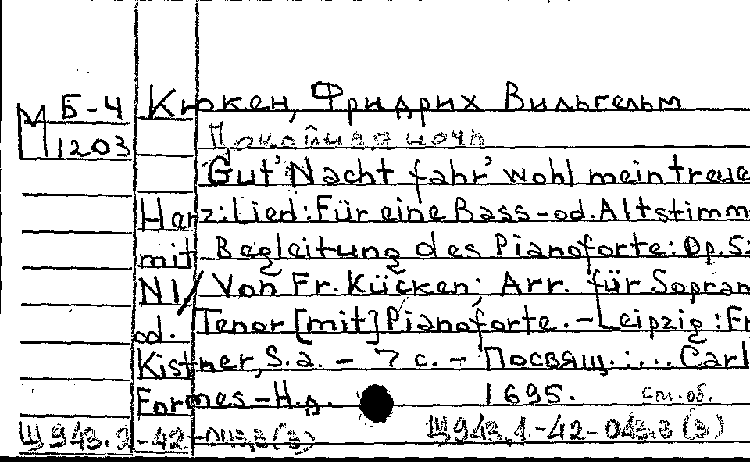 Б-4 Крокен, Фридрих Вильгельм
М 1203 Покойная ночь
Gut' Nacht fahr' wohl mein treue
Herz: Lied: Für eine Bass-od. Altstimm
mit Begleitung des Pianoforte: Op. 5
N1/ Von Fr. Kücken; Arr. für Sopran
od. Tenor [mit] Pianoforte. – Leipzig: Fr
Kistner, S.a. – 7 с. – Посвящ.: ... Carl
Formes – Н.д. 1695. см.об.
Щ943.1-42-043,3(3)